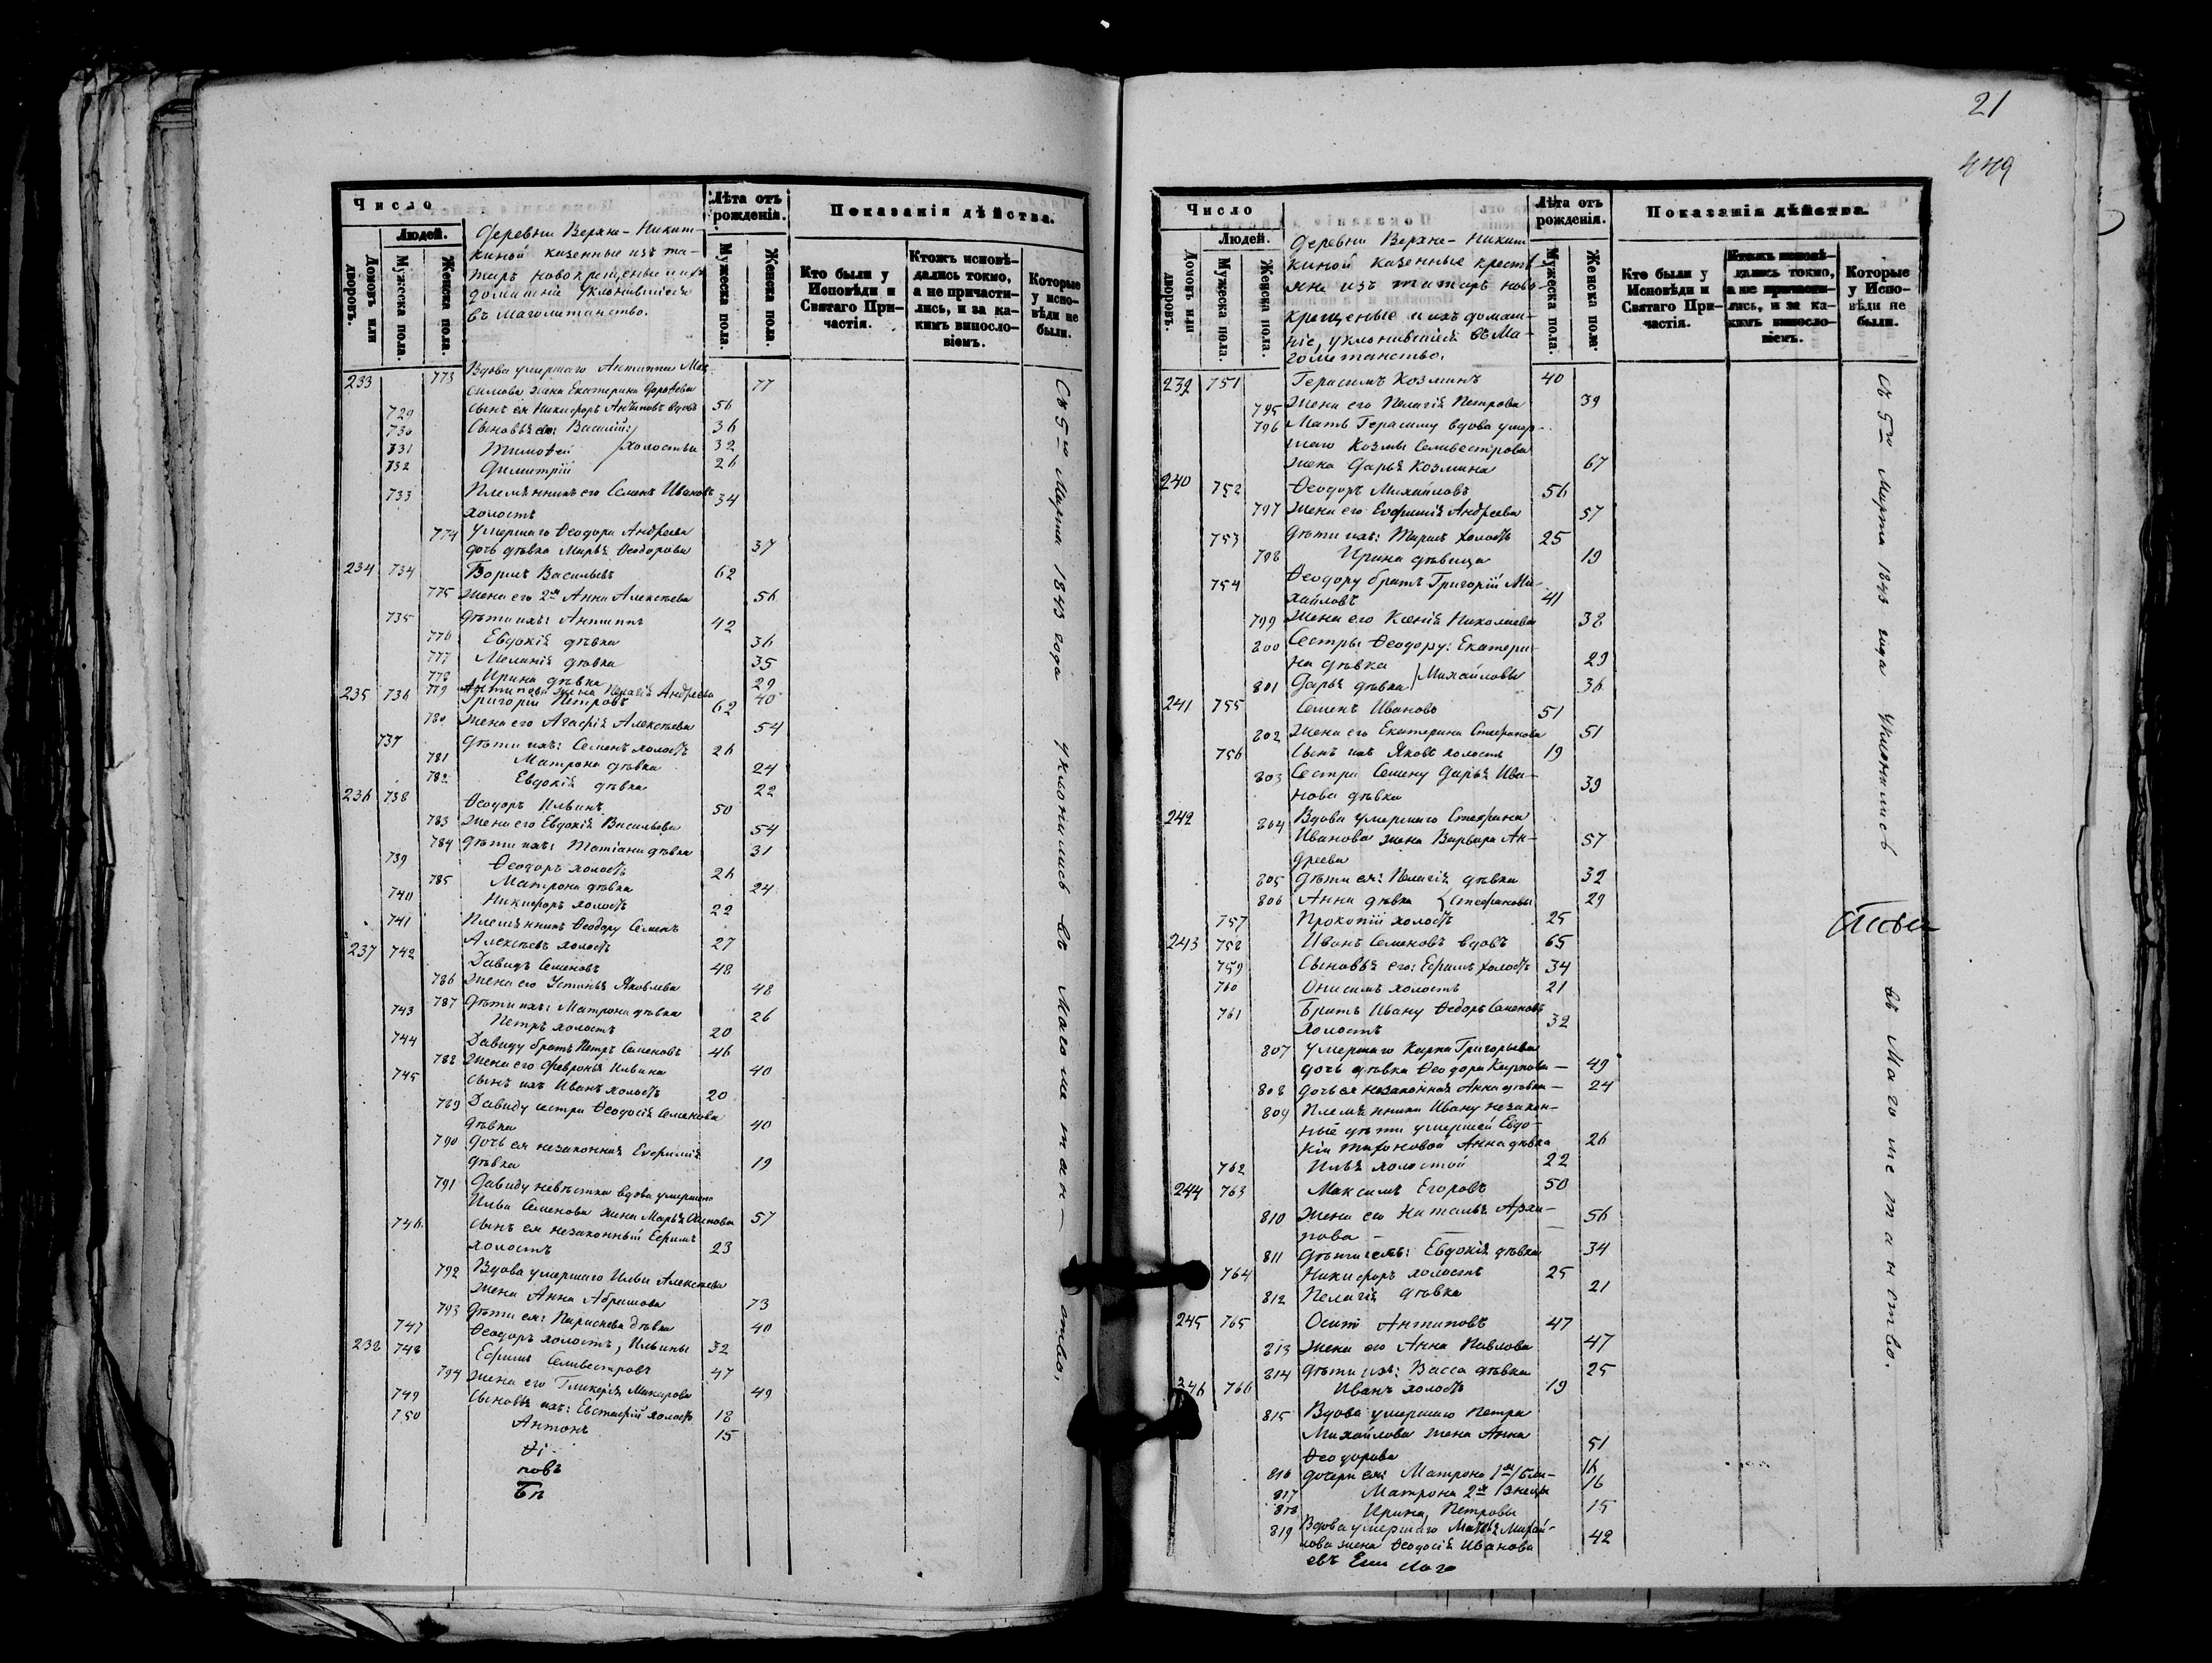 Число
Людей.
Домовъ или дворовъ.
Мужеска пола.
Женска пола.
Деревни Верхне-Никит-
киной казенные изъ та-
таръ новокрещеные и ихъ
домашніе уклонившіеся
въ магометанство.
Лѣта отъ рожденія.
Мужеска пола.
Женска пола.
Показанія дѣйства.
Кто были у Исповѣди и Святаго При-
частія.
Ктожъ исповѣ-
дались токмо,
а не причасти-
лись, и за ка-
кимъ винносло-
віемъ.
Которые
у испо-
вѣди не
были.
233 773 Вдова умершаго Антипы Мак-
симова жена Екатерина Дорофеева 77
729 Сынъ ея Никифоръ Антиповъ вдовъ 56
730 Сыновья его: Василій 36
731 Тимофей холосты 32
732 Димитрій 26
733 Племянникъ его Семенъ Ивановъ 34
холостъ
774 Умершаго Ѳеодора Андреева
дочь дѣвка Марья Ѳеодорова 37
234 734 Борисъ Васильевъ 62
775 Жена его 2я Анна Алексѣева 56
735 Дѣти ихъ: Антипъ 42
776 Евдокія дѣвка 36
777 Меланія дѣвка 35
778 Ирина дѣвка 29
779 Антипова жена Пелагія Андреева 40
235 736 Григорій Петровъ 62
780 Жена его Агафія Алексѣева 54
737 Дѣти ихъ: Семенъ холостъ 26
781 Матрона дѣвка 24
782 Евдокія дѣвка 22
236 738 Ѳеодоръ Ильинъ 50
783 Жена его Евдокія Васильева 54
784 Дѣти ихъ: Татіана дѣвка 31
739 Ѳеодоръ холостъ 26
785 Матрона дѣвка 24
740 Никифоръ холостъ 22
741 Племянникъ Ѳеодору Семенъ
Алексѣевъ холостъ 27
237 742 Давидъ Семеновъ 48
786 Жена его Устинья Яковлева 48
787 Дѣти ихъ: Матрона дѣвка 26
743 Петръ холостъ 20
744 Давиду братъ Петръ Семеновъ 46
788 Жена его Февронья Ильина 40
745 Сынъ ихъ Иванъ холостъ 20
789 Давиду сестра Ѳеодосія Семенова
дѣвка 40
790 Дочь ея незаконная Евфимія
дѣвка 19
791 Давиду невѣстка вдова умершаго
Ильи Семенова жена Марья Осипова 57
746 Сынъ ея незаконный Ефимъ
холостъ 23
792 Вдова умершаго Ильи Алексѣева
жена Анна Абрамова 73
793 Дѣти ея: Параскева дѣвка 40
747 Ѳеодоръ холостъ, Ильины 32
238 748 Ефимъ Селивестровъ 47
794 Жена его Гликерія Макарова 49
749 Сыновья ихъ: Евстафій холостъ 18
750 Антонъ 15
повъ
Съ 5го Марта 1843 года уклонились въ Магометан-
ство.
21
449
Число
Людей.
Домовъ или дворовъ.
Мужеска пола.
Женска пола.
Деревни Верхне-Никит-
киной казенные кресть-
яне изъ татаръ ново-
крещеные и ихъ домаш-
ніе, уклонившіеся въ Ма-
гометанство.
Лѣта отъ рожденія.
Мужеска пола.
Женска пола.
Показанія дѣйства.
Кто были у
Исповѣди и
Святаго При-
частія.
Ктожъ исповѣ-
дались токмо,
а не причасти-
лись, и за ка-
кимъ винносло-
віемъ.
Которые
у Испо-
вѣди не
были.
239 751 Герасимъ Козминъ 40
795 Жена его Пелагія Петрова 39
796 Мать Герасиму вдова умер-
шаго Козмы Селивестрова
жена Дарья Козмина 67
240 752 Ѳеодоръ Михайловъ 56
797 Жена его Евфимія Андреева 57
753 Дѣти ихъ: Тарасъ холостъ 25
798 Ирина дѣвица 19
754 Ѳеодору братъ Григорій Ми-
хайловъ 41
799 Жена его Ксенія Николаева 38
800 Сестры Ѳеодору: Екатери-
на дѣвка 29
801 Дарья дѣвка Михайловы 36
241 755 Семенъ Ивановъ 51
802 Жена его Екатерина Стефанова 51
756 Сынъ ихъ Яковъ холостъ 19
803 Сестра Семену Дарья Ива-
нова дѣвка 39
242 804 Вдова умершаго Стефана
Иванова жена Варвара Ан-
дреева 57
805 Дѣти ея: Пелагія дѣвка 32
806 Анна дѣвка Стефановы 29
757 Прокопій холостъ 25
243 758 Иванъ Семеновъ вдовъ 65
759 Сыновья его: Ефимъ холостъ 34
760 Онисимъ холостъ 21
761 Братъ Ивану Ѳедоръ Семеновъ
холостъ 32
807 Умершаго Карпа Григорьева
дочь дѣвка Ѳеодора Карпова 49
808 Дочь ея незаконная Анна дѣвка 24
809 Племянники Ивану незакон-
ные дѣти умершей Евдо-
кіи Тихоновой Анна дѣвка 26
762 Илья холостой 22
244 763 Максимъ Егоровъ 50
810 Жена его Наталья Архи-
пова 56
811 Дѣти ихъ: Евдокія дѣвка 34
764 Никифоръ холостъ 25
812 Пелагія дѣвка 21
245 765 Осипъ Антиповъ 47
813 Жена его Анна Павлова 47
814 Дѣти ихъ: Васса дѣвка 25
246 766 Иванъ холостъ 19
815 Вдова умершаго Петра
Михайлова жена Анна
Ѳеодорова 51
816 Дочери ея: Матрона 1я Близ- 16
817 Матрона 2я знецы 16
818 Ирина, Петровы 15
819 Вдова умершаго Матвѣя Михай-
лова жена Ѳеодосія Иванова 42
Съ 5го Марта 1843 года уклонились въ Магометанство.